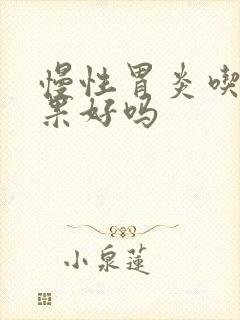 慢性胃炎喫
果好吗
小泉蓮